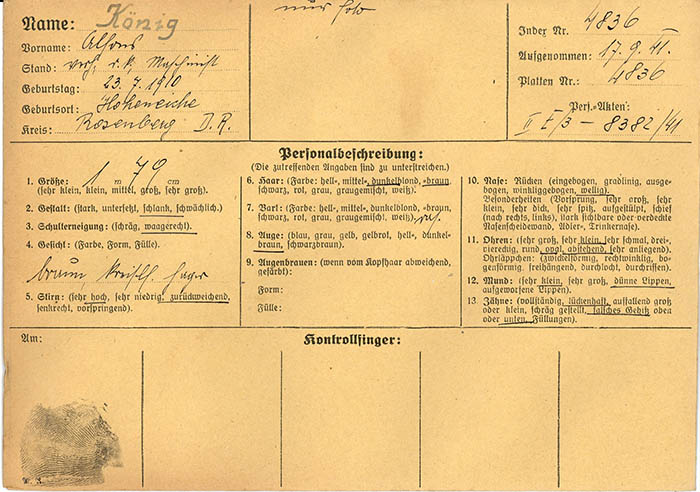 Name: König
Vorname: Alfons
Stand: verh. r. k. Maschinist
Geburtstag: 23. 7. 1910
Geburtsort: Hoheneiche
Kreis: Rosenberg D. R.
nur Foto
Index Nr. 4836
Aufgenommen: 17. 9. 41.
Platten Nr.: 4836
Pers.-Akten:
II E/3 – 8382/41
Personalbeschreibung:
(Die zutreffenden Angaben sind zu unterstreichen.)
1. Größe: 1 m 79 cm
(sehr klein, klein, mittel, groß, sehr groß).
2. Gestalt: (stark, untersetzt, schlank, schwächlich).
3. Schulterneigung: (schräg, waagerecht).
4. Gesicht: (Farbe, Form, Fülle).
braun, hager
5. Stirn: (sehr hoch, sehr niedrig, zurückweichend,
senkrecht, vorspringend).
6. Haar: (Farbe: hell-, mittel-, dunkelblond, -braun,
schwarz, rot, grau, graugemischt, weiß).
7. Bart: (Farbe: hell-, mittel-, dunkelblond, -braun,
schwarz, rot, grau, graugemischt, weiß),
8. Auge: (blau, grau, gelb, gelbrot, hell-, dunkel-
braun, schwarzbraun).
9. Augenbrauen: (wenn vom Kopfhaar abweichend,
gefärbt):
Form:
Fülle:
10. Nase: Rücken (eingebogen, gradlinig, ausge-
bogen, winkliggebogen, wellig).
Besonderheiten (Vorsprung, sehr groß, sehr
klein, sehr dick, sehr spitz, aufgestülpt, schief
(nach rechts, links), stark sichtbare oder verdeckte
Nasenscheidewand, Adler-, Trinkernase).
11. Ohren: (sehr groß, sehr klein, sehr schmal, drei-,
viereckig, rund, oval, abstehend, sehr anliegend).
Ohrläppchen: (zwickelförmig, rechtwinklig, bo-
genförmig, freihängend, durchlocht, durchrissen).
12. Mund: (sehr klein, sehr groß, dünne Lippen,
aufgeworfene Lippen).
13 Zähne: (vollständig, lückenhaft, auffallend groß
oder klein, schräg gestellt, falsches Gebiß oben
oder unten, Füllungen).
Am:
Kontrollfinger: